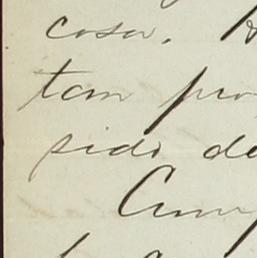 cosa.
tan pro
sido de
Cum